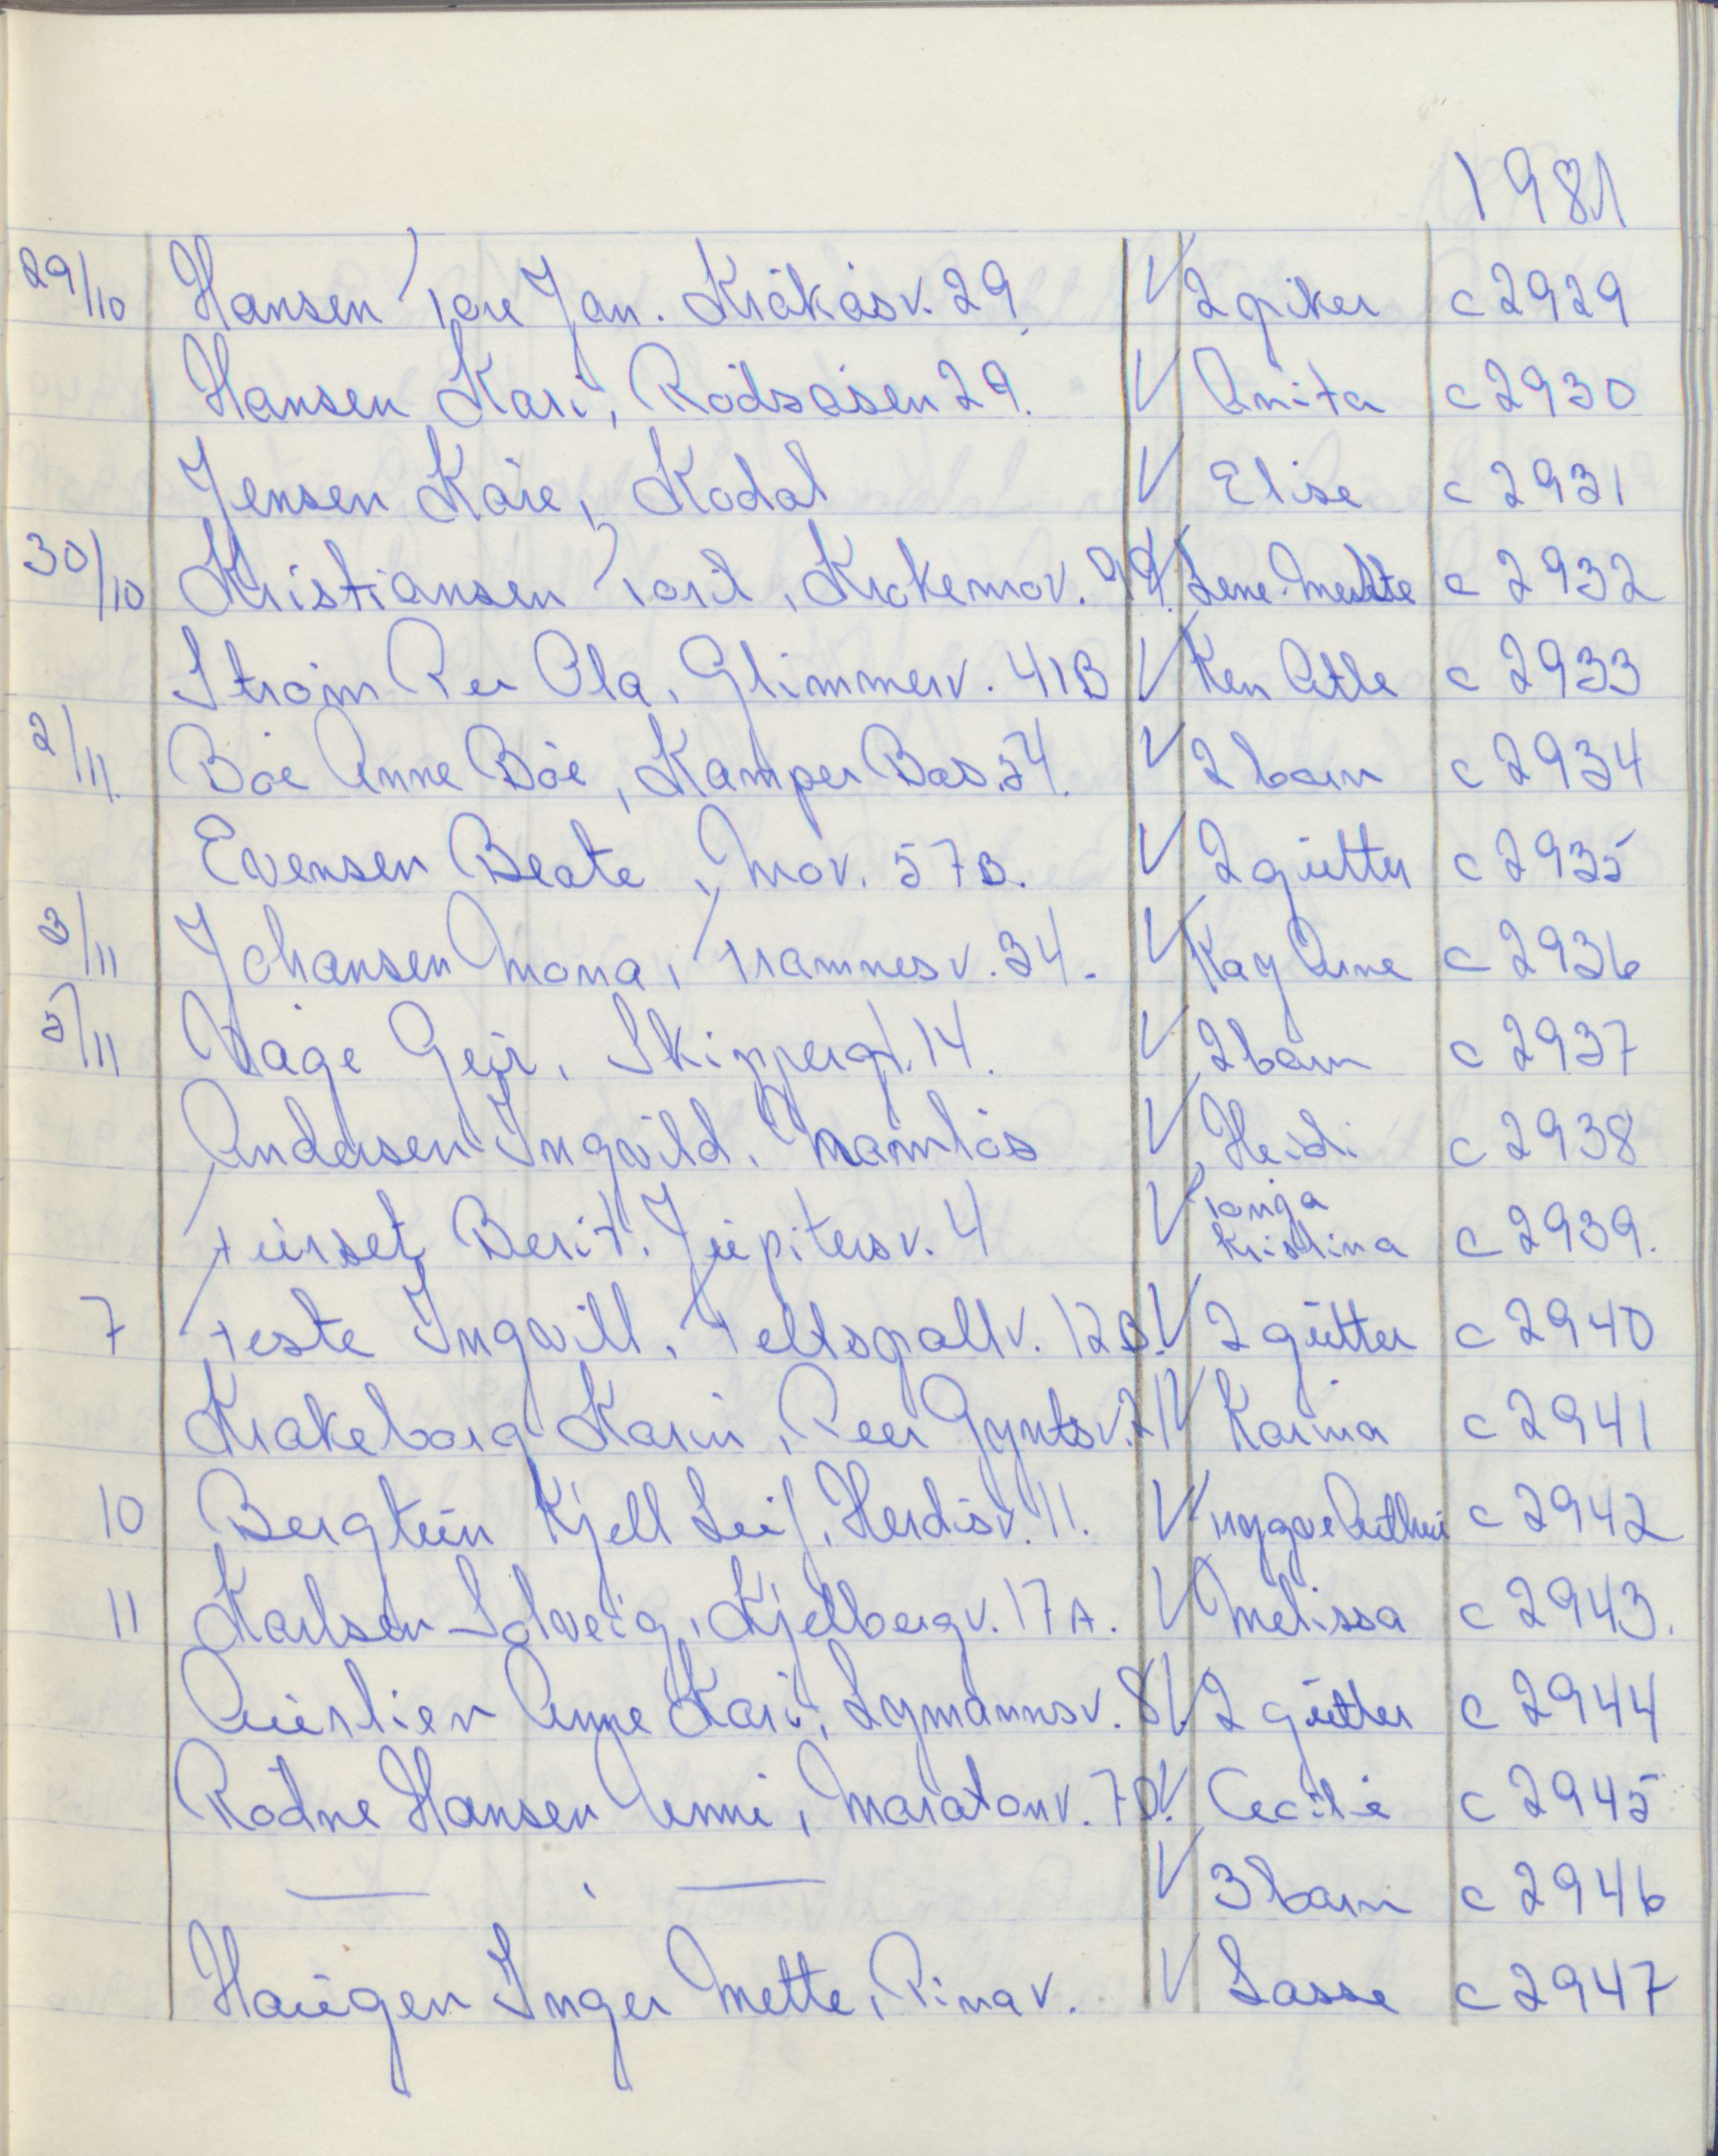 1981
29/10 Hansen Tore Jan. Kråkåsv. 29 V 2 piker c 2929
Hansen Kari, Rødsåsen 29. V Anita c 2930
Jensen Kåre, Kodal V Elise c 2931
30/10 Kristiansen Toril, Krokemov. 99. V Lene Merete c 2932
Strøm Per Ola, Glimmerv. 41B V Ken Atle c 2933
2/11. Bøe Anne Bøe, Kamper Bas. 34. V 2 barn c 2934
Evensen Beate, Mov. 57B. V 2 gutter c 2935
3/11 Johansen Mona, Framnesv. 34. V Kay Arne c 2936
5/11 Våge Geir, Skippergt. 14. V 2 barn c 2937
Andersen Ingvild. Namløs V Heidi c 2938
Furset Berit. Jupitersv. 4 V Tonja Kristina c 2939.
7 Feste Ingvill, Feltspatv. 12B. V 2 gutter c 2940
Krakeborg Karin, Peer Gyntsv. 21 V Karina c 2941
10 Bergtun Kjell Leif, Herdisv. 11. V Trygve c 2942
11 Karlsen Solveig, Kjelbergv. 17A. V Melissa c 2943.
Aurlien Anne Kari, Lymannsv. 8. V 2 gutter c 2944
Rødne Hansen Anni, Maratonv. 7D. V Cecilie c 2945
— , — V 3 barn c 2946
Haugen Inger Mette, Pinav. V Lasse c 2947